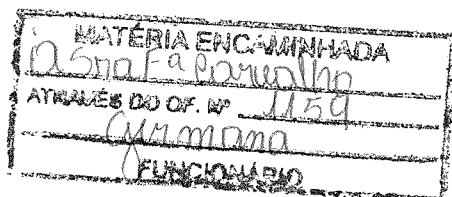 MATÉRIA ENCAMINHADA
a Snaᵗ Fª Carvalho
ATRAVÉS DO OF. Nº 1159
Germana
FUNCIONÁRIO